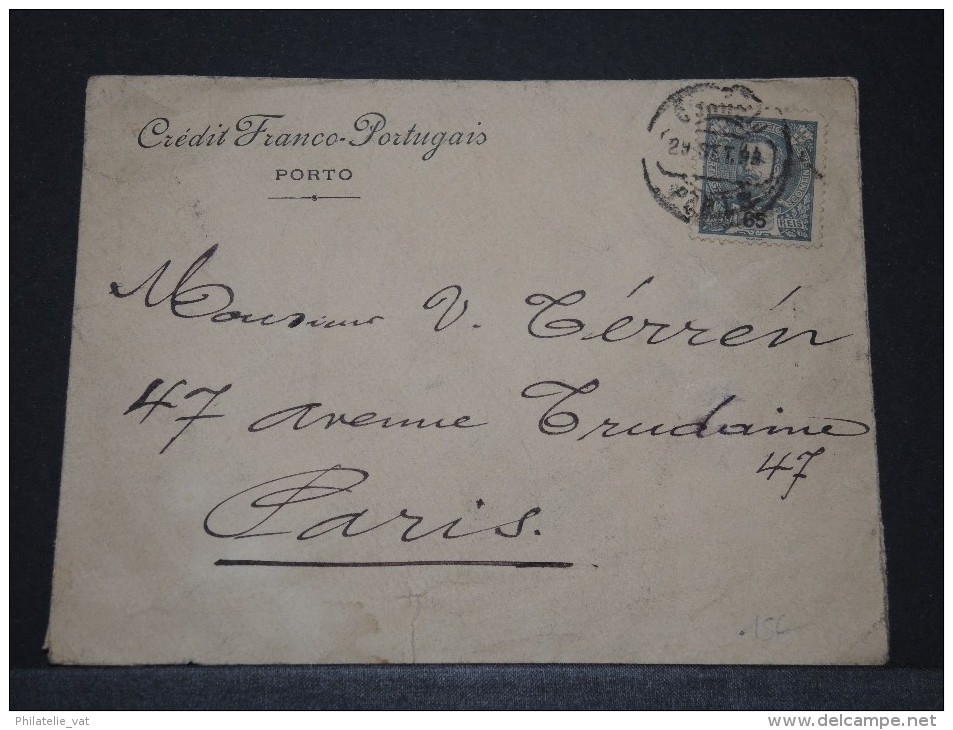 Crédit Franco-Portugais
PORTO
29 SET. 98
PORTO
65
REIS
Monsieur V. Térrén
47 avenue Trudaine
47
Paris.
15€
Philatelie_vat
www.delcampe.net